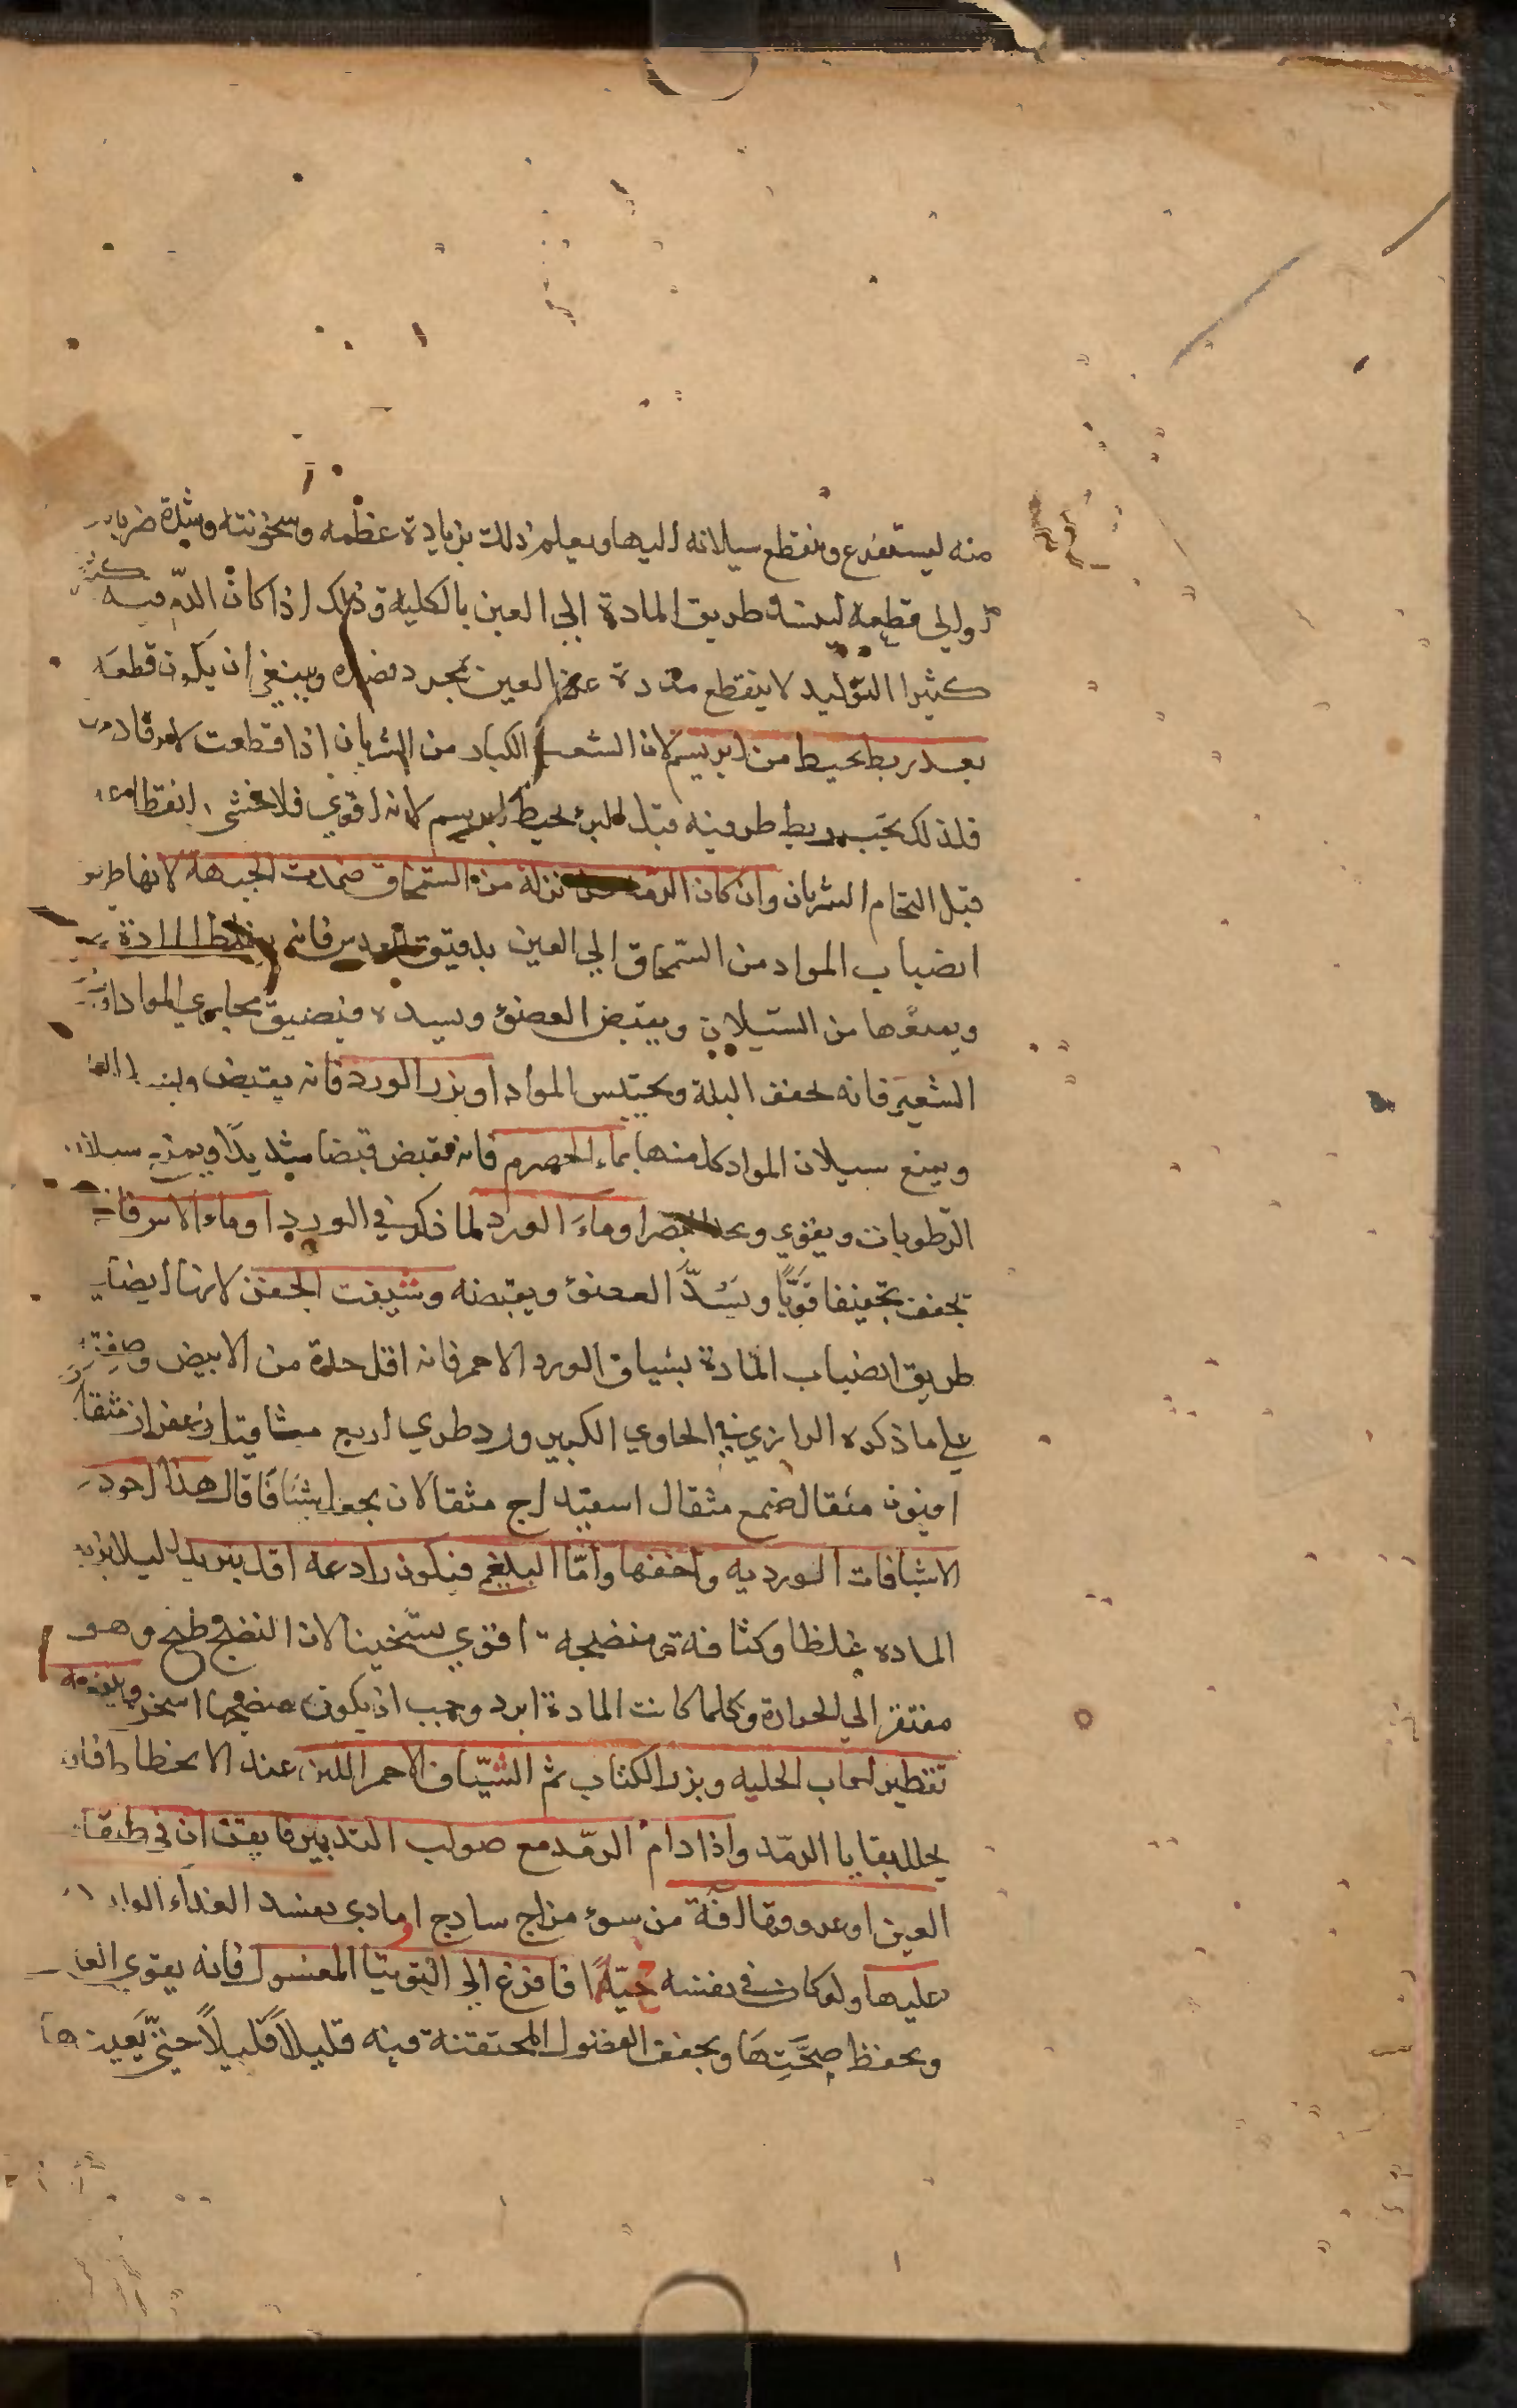 منه ليستفرغ وينقطع سيلانه اليها ويعلم ذلك بزيادة عظمه وسخونته وشدة ضربان
او الي قطعه لينسد طريق المادة الي العين بالكلية وذلك اذا كان الدم فيه
كثيرا التوليد لا ينقطع مدده عن العين بمجرد فصده وينبغي ان يكون قطعه
بعد ربط بخيط من ابريسم لان الشعب الكبار من الشريان اذا قطعت
فلذلك يجب ربط طرفيه قبل البرء بخيط ابريسم لانه اقوي فلا يخشي انقطاعه
قبل التحام الشريان وان كان الرمد نزلة من السمحاق ضمدت الجبهة لانها طريق
انصباب المواد من السمحاق الي العين بدقيق العدس فانه يغلظ المادة
ويمنعها من السيلان ويقبض العضو ويسدده فيضيق مجاري المواد
الشعير فانه يجفف البلة ويحتبس المواد او بزر الورد فانه يقبض
ويمنع سيلان المواد كل منها بماء الحصرم فانه يقبض قبضا شديدا ويمنع سيلان
الرطوبات ويقوي البصر او ماء الورد لما ذكر في الورد او ماء الاس فانه
يجفف تجفيفا قويا ويسد العضو ويقبضه وشيفت الجفن لانها ايضا
طريق انصباب المادة بشياف الورد الاحمر فانه اقل حدة من الابيض وصفته
علي ما ذكره الرازي في الحاوي الكبير ورد طري اربع مثاقيل زعفران مثقال
افيون مثقال صمغ مثقال اسفيداج مثقالان يجعل شيافا قال هذا اجود
الاشيافات الوردية واخفها واما البلغم فيكون رادعه اقل تبريدا ليلا يزيد
المادة غلظا وكثافة ومنضجه اقوي تسخينا لان النضج طبخ وهو
مفتقر الي الحرارة وكلما كانت المادة ابرد وجب ان يكون منضجها اسخن وينفعه
تقطير لعاب الحلبه وبزر الكتان ثم الشياف الاحمر اللين عند الانحطاط فانه
يحلل بقايا الرمد واذا دام الرمد مع صواب التدبير فايقن ان في طبقات
العين او عروقها افة من سوء مزاج ساذج او مادي يفسد الغذاء الوارد
عليها ولو كان في نفسه جيدا فافزع الي التوتيا المغسول فانه يقوي العين
ويحفظ صحتها ويجفف الفضول المحتقنة فيه قليلا قليلا حتي